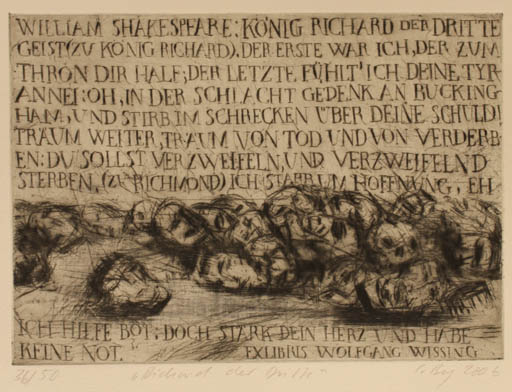 WILLIAM SHAKESPEARE: KÖNIG RICHARD DER DRITTE
GEIST (ZU KÖNIG RICHARD), DER ERSTE WAR ICH, DER ZUM
THRON DIR HALF; DER LETZTE FÜHLT' ICH DEINE TYR-
ANNEI: OH, IN DER SCHLACHT GEDENK AN BUCKING-
HAM, UND STIRB IM SCHRECKEN ÜBER DEINE SCHULD!
TRAUM WEITER, TRAUM VON TOD UND VON VERDERB-
EN: DU SOLLST VERZWEIFELN, UND VERZWEIFELND
STERBEN, (ZU RICHMOND) ICH STARB UM HOFFNUNG, EH
ICH HILFE BOT; DOCH STÄRK DEIN HERZ UND HABE
KEINE NOT." EXLIBRIS WOLFGANG WISSING
36/50 „Richard der Dritte" 2006